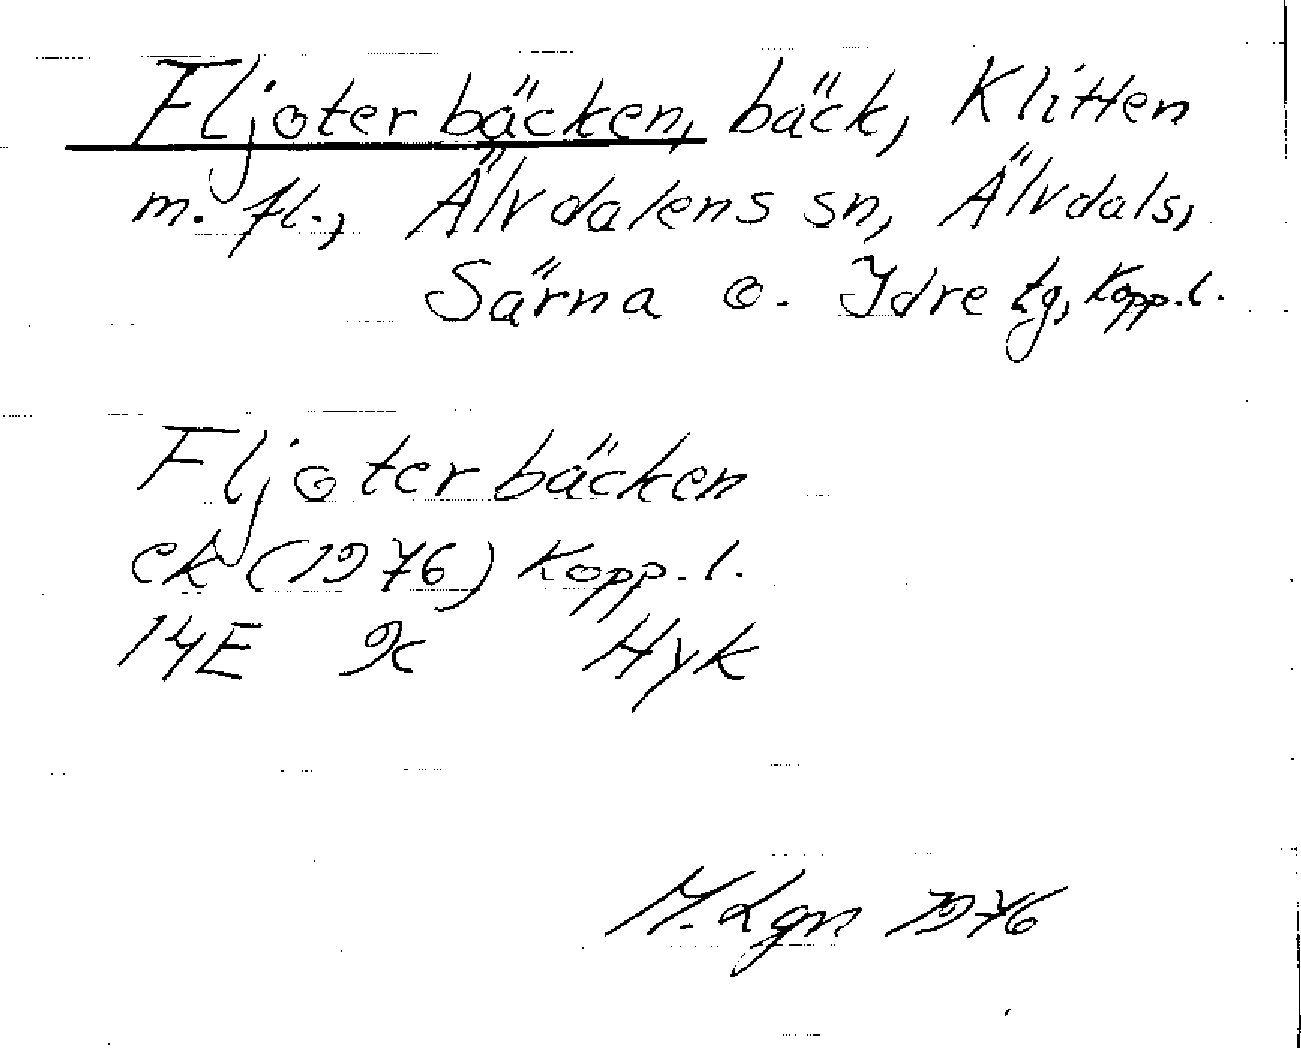 Fljoterbäcken, bäck, Klitten
m. fl., Älvdalens sn, Älvdals,
Särna o. Idre tg, Kopp. l.
Fljoterbäcken
ek (1976) Kopp. l.
14E 9c Hyk
M. Lgn 1976